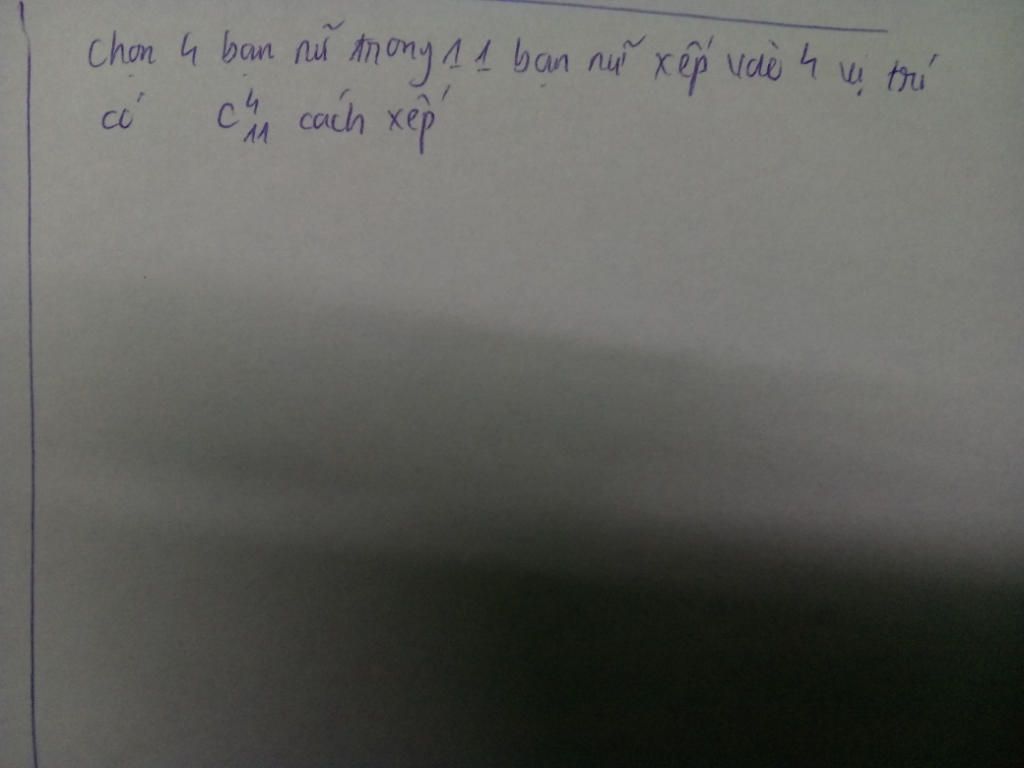 Chọn 4 bạn nữ trong 11 bạn nữ xếp vào 4 vị trí
có C⁴₁₁ cách xếp